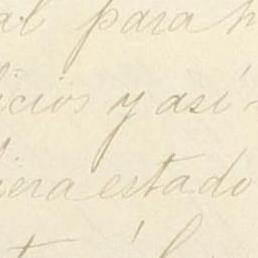 al para h
icios y así
iera estado